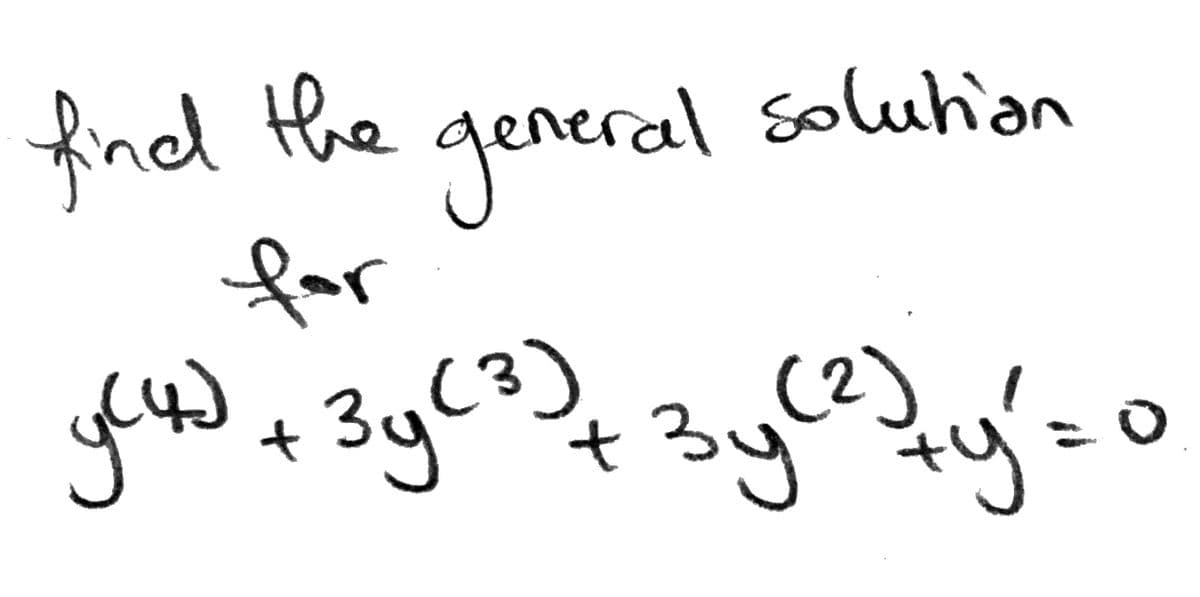 find the general solution
for
y^(4) + 3y^(3) + 3y^(2) + y' = 0